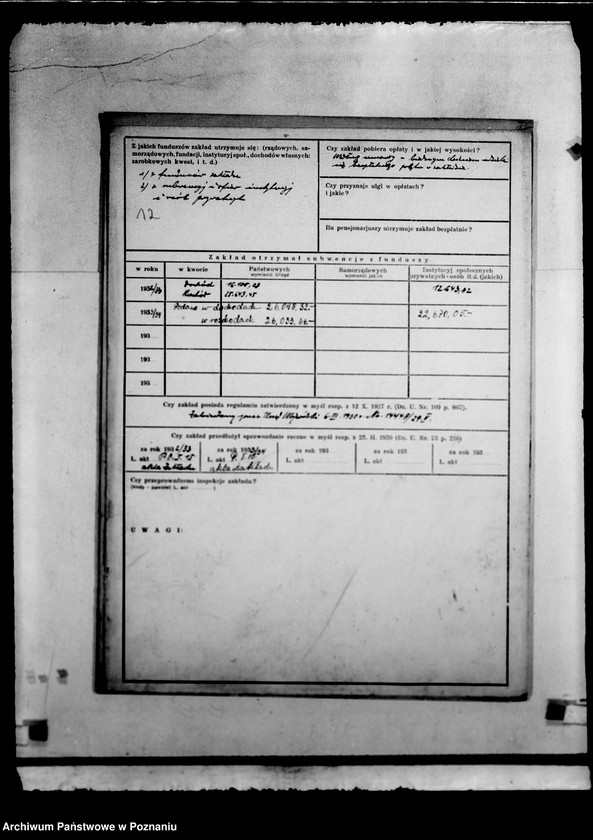 Z jakich funduszów zakład utrzymuje się: (rządowych, sa-
morządowych, fundacji, instytucyj społ., dochodów własnych:
zarobkowych kwest, i t. d.)
1) z funduszów zakładu
2) z subwencyj i ofiar instytucyj
i osób prywatnych
12
Czy zakład pobiera opłaty i w jakiej wysokości?
Według umowy
Czy przyznaje ulgi w opłatach?
i jakie?
Ilu pensjonarjuszy utrzymuje zakład bezpłatnie?
Zakład otrzymał subwencje z funduszy
w roku
w kwocie
Państwowych
wymienić Urząd
Samorządowych
wymienić jakich
Instytucj społecznych
prywatnych-osób it.d. (jakich)
1932/33
Dochód
Rozchód
12.643,02
1933/34
Podano w dochodach 26,048,32.–
w rozchodach 26,033,66–
22,670,05.–
193
193
193
Czy zakład posiada regulamin zatwierdzony w myśl rozp. z 12 X. 1927 r. (Dz. U. Nr. 100 p. 867).
Zatwierdzony przez Urząd Wojewódzki
Czy zakład przedłożył sprawozdanie roczne w myśl rozp. z 25. II. 1930 (Dz. U. Nr. 23 p. 210)
za rok 1932/33
L. akt
akta Zakładu
za rok 1933/34
L. akt
akta zakładu
za rok 193
L. akt
za rok 193
L. akt
za rok 193
L. akt
Czy przeprowadzono inspekcje zakładu?
UWAGI:
Archiwum Państwowe w Poznaniu